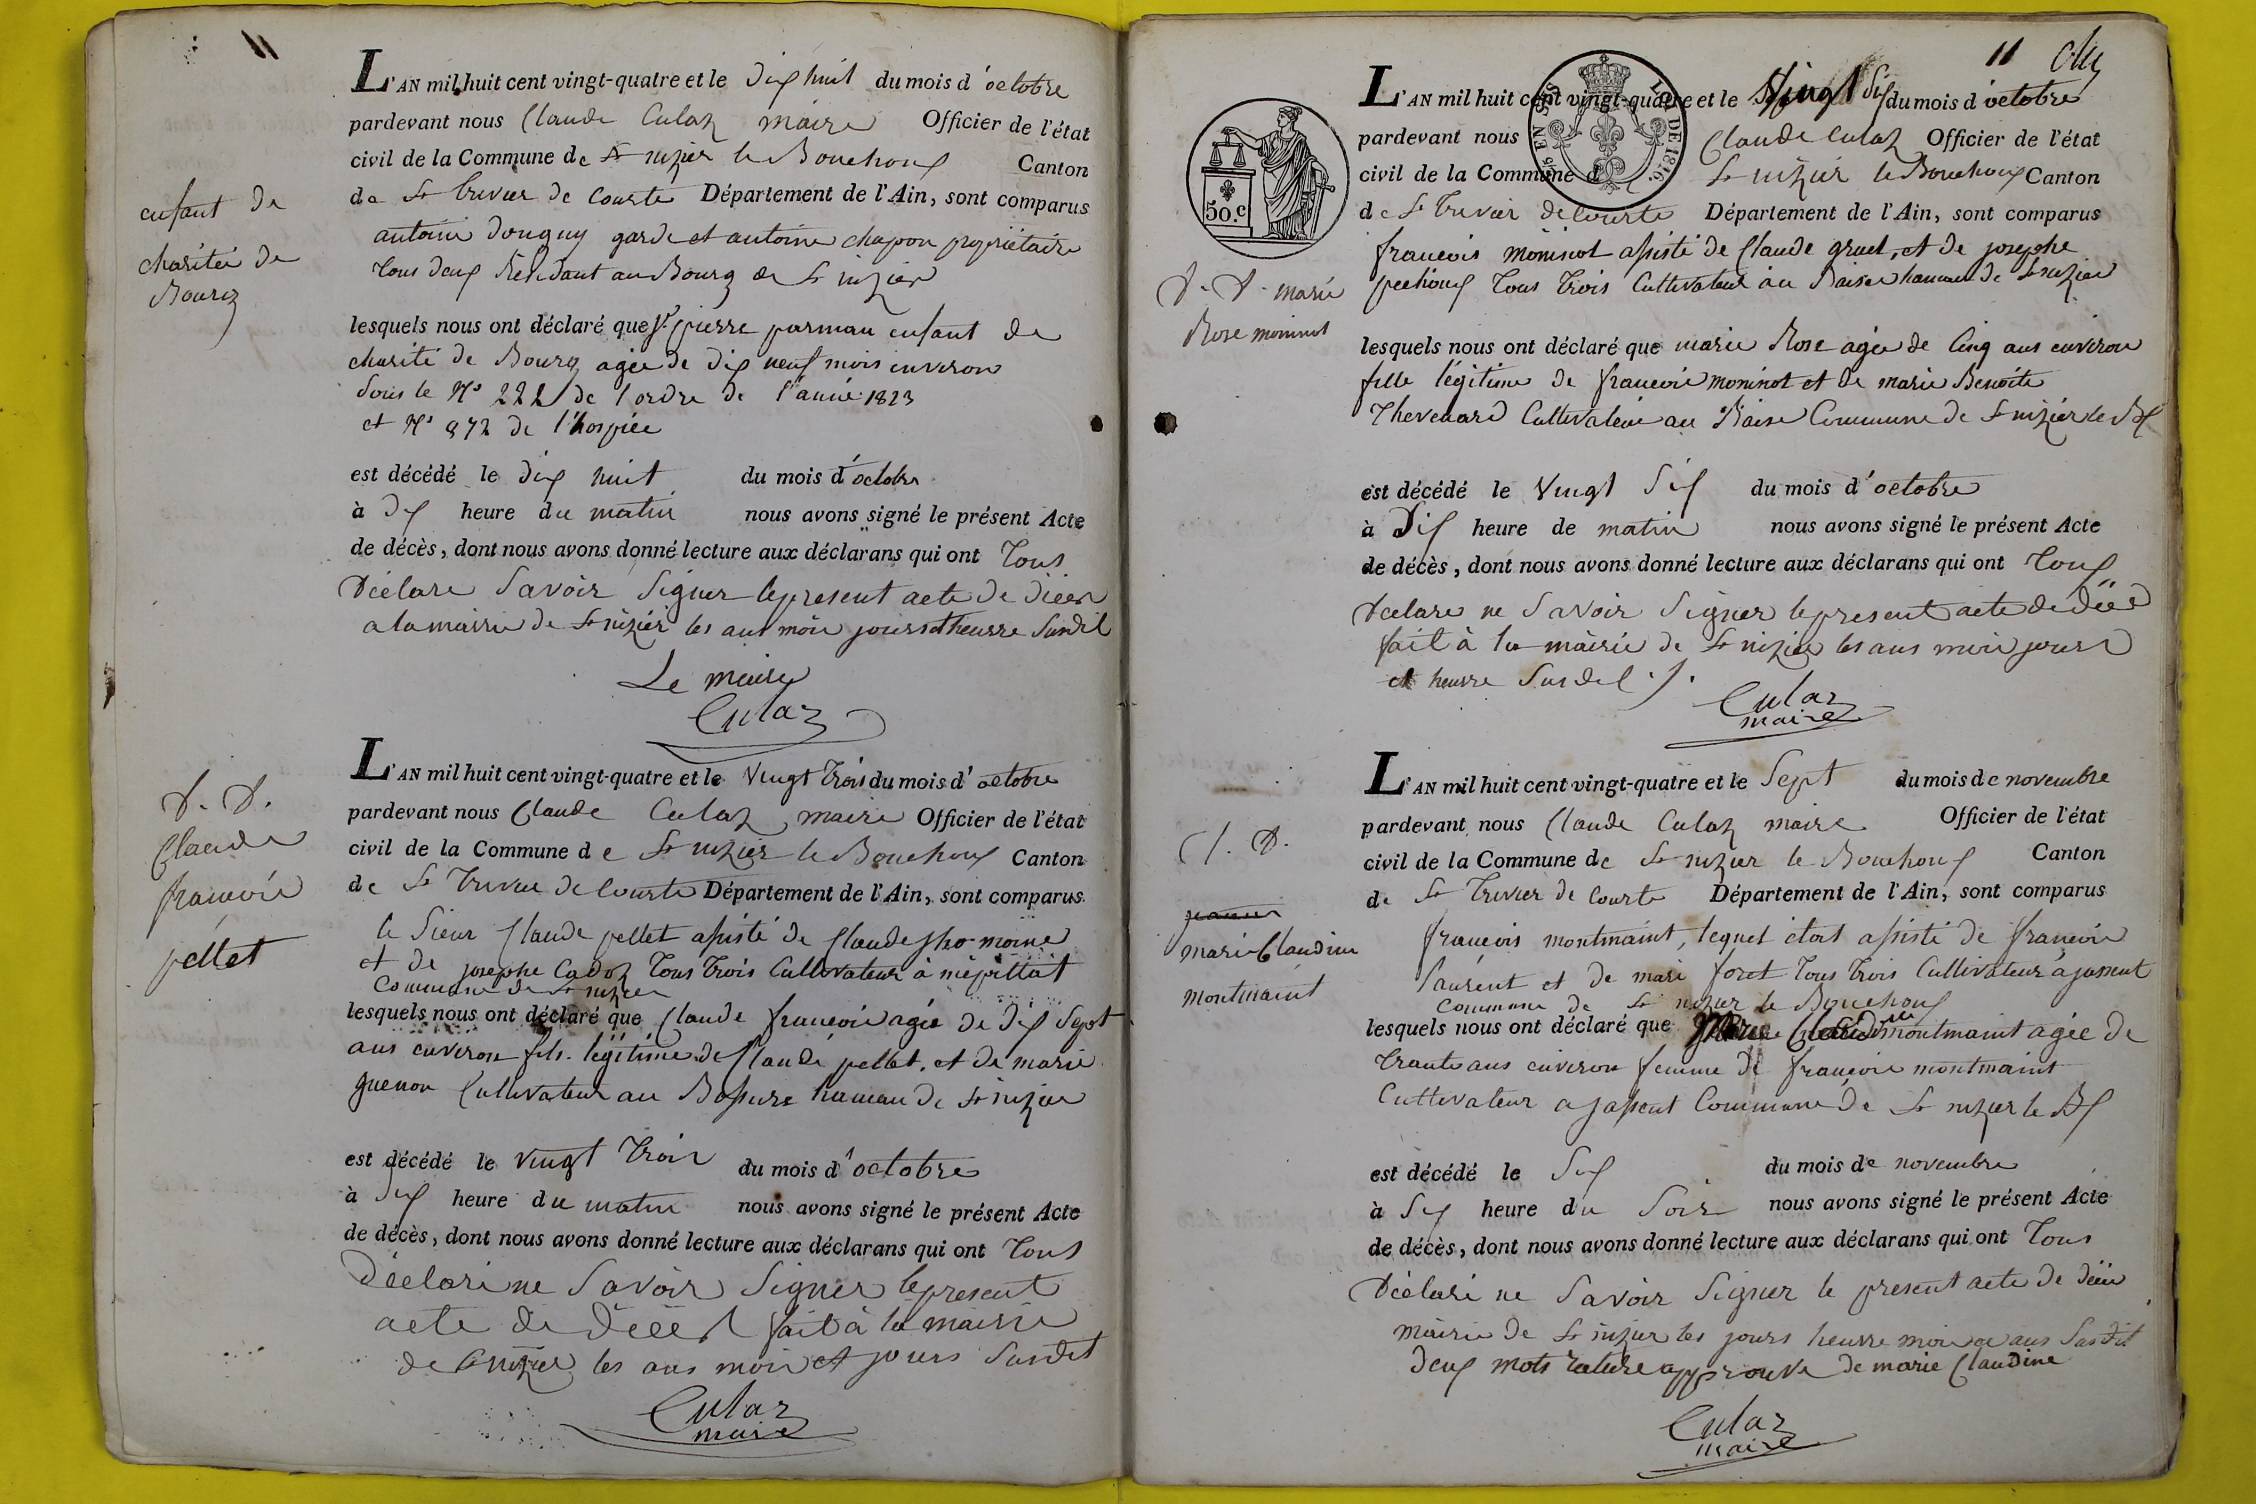 11
L'AN mil huit cent vingt-quatre et le dix huit du mois d'octobre
pardevant nous Claude Culaz maire Officier de l'état
civil de la Commune de St nizier le Bouchoux Canton
de St trivier de Courte Département de l'Ain, sont comparus
antoine douguy garde et antoine chapon propriétaire
tous deux Résidant au Bourg de St nizier
enfant de
charitéé de
Bourg
lesquels nous ont déclaré que pierre parmau enfant de
charité de Bourg agée de dix neuf mois environ
sous le No 222 de l'ordre de l'année 1823
et No 872 de l'hospice
est décédé le dix huit du mois d'octobre
à dix heure du matin nous avons signé le présent Acte
de décès, dont nous avons donné lecture aux déclarans qui ont tous
déclare Savoir Signer le present acte de
a la mairie de St nizier les ans mois jours et heurre Susdit
Le maire
Culaz
D. D.
Claude
francois
pellet
L'AN mil huit cent vingt-quatre et le vingt trois du mois d'octobre
pardevant nous Claude Culaz maire Officier de l'état
civil de la Commune de St nizier le Bouchoux Canton
de St trivier de Courte Département de l'Ain, sont comparus
le Sieur Claude pellet assisté de Claude moine
et de josephe Cadoz tous trois Cultivateur à mépillat
Commune de St nizier
lesquels nous ont déclaré que Claude francois agée de dix Sept
ans environ fils légitime de Claude pellet, et de marie
guenon Cultivateur au hameau de St nizier
est décédé le vingt trois du mois d'octobre
à dix heure du matin nous avons signé le présent Acte
de décès, dont nous avons donné lecture aux déclarans qui ont tous
déclaré ne Savoir Signer le present
acte de fait à la mairie
de St nizier les ans mois et jours Susdit
Culaz
maire
11
50.c
DE 1816.
L'AN mil huit cent vingt-quatre et le vingt six du mois d'octobre
pardevant nous Claude Culaz Officier de l'état
civil de la Commune d St nizier le Bouchoux Canton
de St trivier de Courte Département de l'Ain, sont comparus
francois moninot assisté de Claude gruel, et de josephe
pechoux tous trois Cultivateur au hameau de St nizier
D. D. marie
Rose moninot
lesquels nous ont déclaré que marie Rose agée de Cinq ans environ
fille légitime de francois moninot et de marie Benoite
thevenard Cultivateur au Commune de St nizier le Bx
est décédé le vingt Six du mois d'octobre
à Dix heure de matin nous avons signé le présent Acte
de décès, dont nous avons donné lecture aux déclarans qui ont tous
déclare ne Savoir Signer le present acte de
fait à la mairie de St nizier les ans mois jours
et heurre Susdit
Culaz
maire
D.
marie Claudine
montmaint
L'AN mil huit cent vingt-quatre et le Sept du mois de novembre
pardevant nous Claude Culaz maire Officier de l'état
civil de la Commune de St nizier le Bouchoux Canton
de St trivier de Courte Département de l'Ain, sont comparus
francois montmaint, lequel etoit assisté de francois
laurent et de mari foret tous trois Cultivateur a jassent
Commune de St nizier le Bouchoux
lesquels nous ont déclaré que Marie Claudine montmaint agée de
trante ans environ femme de francois montmaint
Cultivateur a jassent Commune de St nizier le Bx
est décédé le Six du mois de novembre
à Six heure du Soir nous avons signé le présent Acte
de décès, dont nous avons donné lecture aux déclarans qui ont tous
déclaré ne Savoir Signer le present acte de
mairie de St nizier les jours heurre mois ans Susdit
deux mots rature approuve de marie Claudine
Culaz
maire